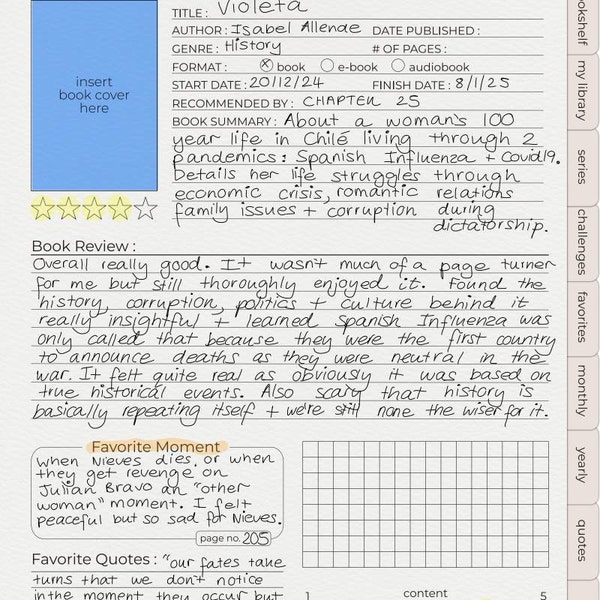 TITLE : Violeta
AUTHOR : Isabel Allende DATE PUBLISHED :
GENRE : History # OF PAGES :
FORMAT : book e-book audiobook
START DATE : 20/12/24 FINISH DATE : 8/1/25
RECOMMENDED BY : CHAPTER 25
BOOK SUMMARY : About a woman's 100
year life in Chilé living through 2
pandemics: Spanish Influenza + Covid19.
Details her life struggles through
economic crisis, romantic relations
family issues + corruption during
dictatorship.
insert
book cover
here
Book Review :
Overall really good. It wasn't much of a page turner
for me but still thoroughly enjoyed it. Found the
history, corruption, politics + culture behind it
really insightful + learned Spanish Influenza was
only called that because they were the first country
to announce deaths as they were neutral in the
war. It felt quite real as obviously it was based on
true historical events. Also scary that history is
basically repeating itself + we're still none the wiser for it.
Favorite Moment
When Nieves dies, or when
they get revenge on
Julian Bravo an "other
woman" moment. I felt
peaceful but so sad for Nieves.
page no. 205
Favorite Quotes : "our fates take
turns that we don't notice
in the moment they occur but
1 content 5
ookshelf
my library
series
challenges
favorites
monthly
yearly
quotes